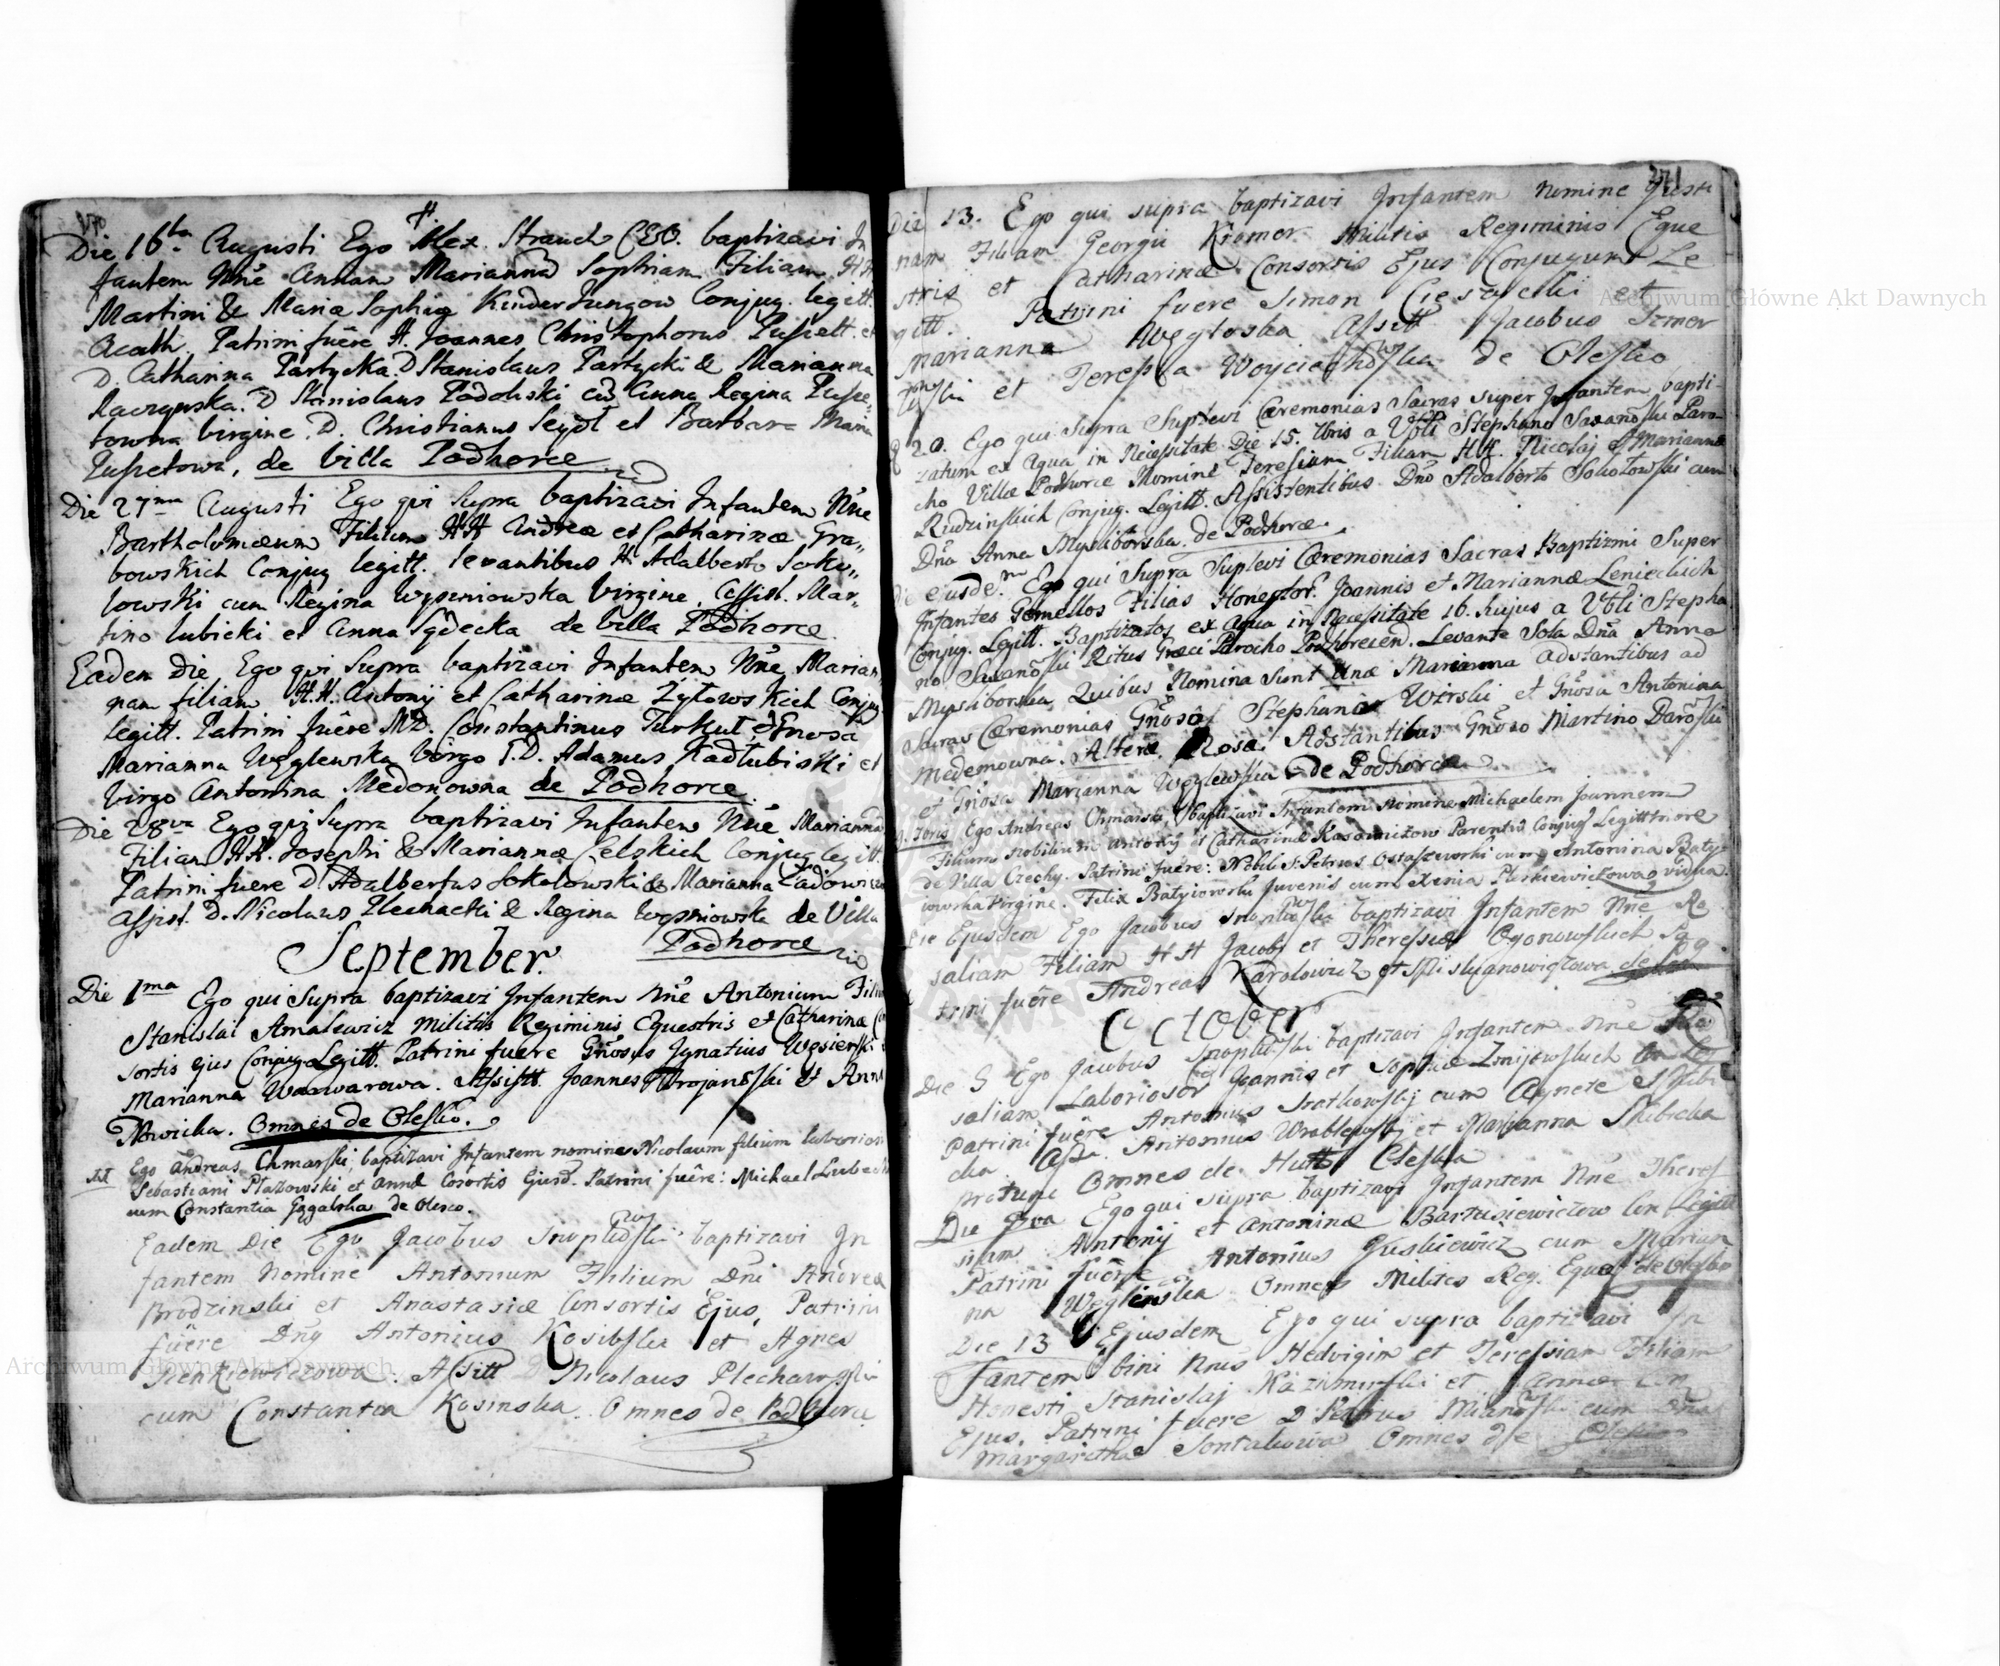 270
Die 16ta Augusti Ego Alex. Strauch CEO. baptizavi In
fantem Nne Annam Mariannam Sophiam Filiam HH
Martini & Mariæ Sophiæ Kinder Jungow Conjug. legitt.
Acath. Patrini fuêre H. Joannes Christophorus et
D. Catharina Partycka. D Stanislaus Partycki & Marianna
D Stanislaus Podolski cũ Anna Regina
towna virgine. D. Christianus Seydl et Barbara Maria
de Villa Podhorce
Die 27ma Augusti Ego qvi supra baptizavi Infantem Nne
Bartholomæum Filium HH Andreæ et Catharinæ Gra„
bowskich Conjug legitt. levantibus H Adalberto Soko„
lowski cum Regina Wyszniowska Virgine. Assist. Mar„
tino Lubicki et Anna Sędecka de Villa Podhorce
Eadem Die Ego qvi Supra baptizavi Infantem Nne Marian
nam filiam H.H. Antonij et Catharinæ Żytowskich Conjug
legitt. Patrini fuêre MD. Constantinus Turkuł & Gnosa
Marianna Węglewska Virgo T.D. Adamus Kadłubiski et
Virgo Antonina Medonowna de Podhorce
Die 28va Ego qvi Supra baptizavi Infantem Nne Mariannã
Filiam HH. Josephi & Mariannæ Celskich Conjug legitt.
Patrini fuere D Adalbertus Sokolowski & Marianna
assist. D. Nicolaus Plechacki & Regina Wyszniowska de Villa
Podhorce
September
Die 1ma Ego qui Supra baptizavi Infantem Nne Antonium Filiu
Stanislai Amalewicz militis Regiminis Equestris et Catharinæ Con
sortis ejus Conjug. Legitt. Patrini fuere Gnosus Ignatius Węsierski
Marianna Wawarowa. Assistt. Joannes Trojanowski et Anna
Nowicka. Omnes de Olesko.
Ego Andreas Chmarski, baptizavi Infantem nomine Nicolaum filium laborios
Sebastiani Płazowski et Annæ Cosortis Ejusd. Patrini fuêre: Michael Lubecki
cum Constantia Jagalska de Olesco.
Eadem Die Ego Jacobus Snopkowski baptizavi In
fantem Nomine Antonium Filium Dni Andreæ
Brodzinski et Anastasiæ Consortis Ejus, Patrini
fuêre Dnq Antonius Kosibski et Agnes
Sienkiewiczowa. Assitt D Nicolaus Plechawski
cum Constantia Kosinska. Omnes de Podhorce
271
Die 13. Ego qui supra baptizavi Infantem nomine Justi
nam Filiam Georgii Kromer Militis Regiminis Eque
stris et Catharinæ Consortis Ejus Conjugum Le
gitt. Patrini fuere Simon Ciesacski et
Marianna Węgloska. Assitt Jacobus
et Teressa Woyciechowska de Olesko
20. Ego qui Supra Suplevi Cæremonias Sacras super Infantem bapti
zatum ex Aqua in Necessitate Die 15. 7bris a Vbli Stephano Saxanoski Paro
cho Villæ Podhorce Nomine Teresiam Filiam H.H. Nicolaj & Mariannæ
Rudzinskich Conjug. Legitt. Assistentibus Dno Adalberto Sokołowski cum
Dna Anna Mysliborska de Podhorce.
Die ejusdem Ego qui Supra Suplevi Cæremonias Sacras Baptizmi Super
Infantes Gemellos Filias Honestor. Joannis et Mariannæ Leniechich
Conjug. Legitt. Baptizatos ex aqua in Necessitate 16. hujus a Vbli Stepha
no Saxanoski Ritus Græci Parocho Podhorecen. Levante Sola Dna Anna
Mysliborska Quibus Nomina Sunt Unæ Marianna adstantibus ad
Sacras Cæremonias Gnoso Stephano Wirski et Gnosa Antonina
Medenowna. Alteræ Rosa. Adstantibus Gnoso Martino Daroski
et Gnosa Marianna Węglewska de Podhorce
7bris Ego Andreas Chmarski, Baptizavi Infantem Nomine Michaelem Joannem
Filium nobilium Antonij et Catharinæ Kasowiczow Parentũ Conjug Legitt
de Villa Czechy. Patrini fuêre: Nobil. Petrus Ostaszewski cum Antonina Baty
iowska Virgine. Felix Batyiowski Juvenis cum Xenia Pliskiewiczowa vidua.
Die Ejusdem Ego Jacobus Snopkowski baptizavi Infantem Nne Ro
saliam Filiam HH Jacobi et Theressiæ Ogonowskich Pa
trini fuêre Andreas Karolowicz et
October
Die 5 Ego Jacobus Snopkowski baptizavi Infantem Nne Ro
saliam Laboriosor Joannis et Sophiæ Zmijowskich Con Leg
Patrini fuêre Antonius Sratkowskj cum Agnete
cka Asst. Antonius Wroblewskj et Marianna Skibicka
Omnes de Hutt Oleska
Die 8va Ego qui supra baptizavi Infantem Nne Theref
siam Antonij et Antoninæ Bartusiewiczow Con Legitt
Patrini fuêre Antonius Guskiewicz cum Marian
na Weglinska Omnes Milites Reg. Eques de Olesko
Die 13 Ejusdem Ego qui supra baptizavi In
fantem bini Nnis Hedvigim et Teressiam Filiam
Honesti Stanislaj Kazimirski et Annæ Con
Ejus. Patrini fuere D Petrus cum Dna
Margaritha Sontakowa Omnes de Olesko
Archiwum Główne Akt Dawnych
Archiwum Główne Akt Dawnych